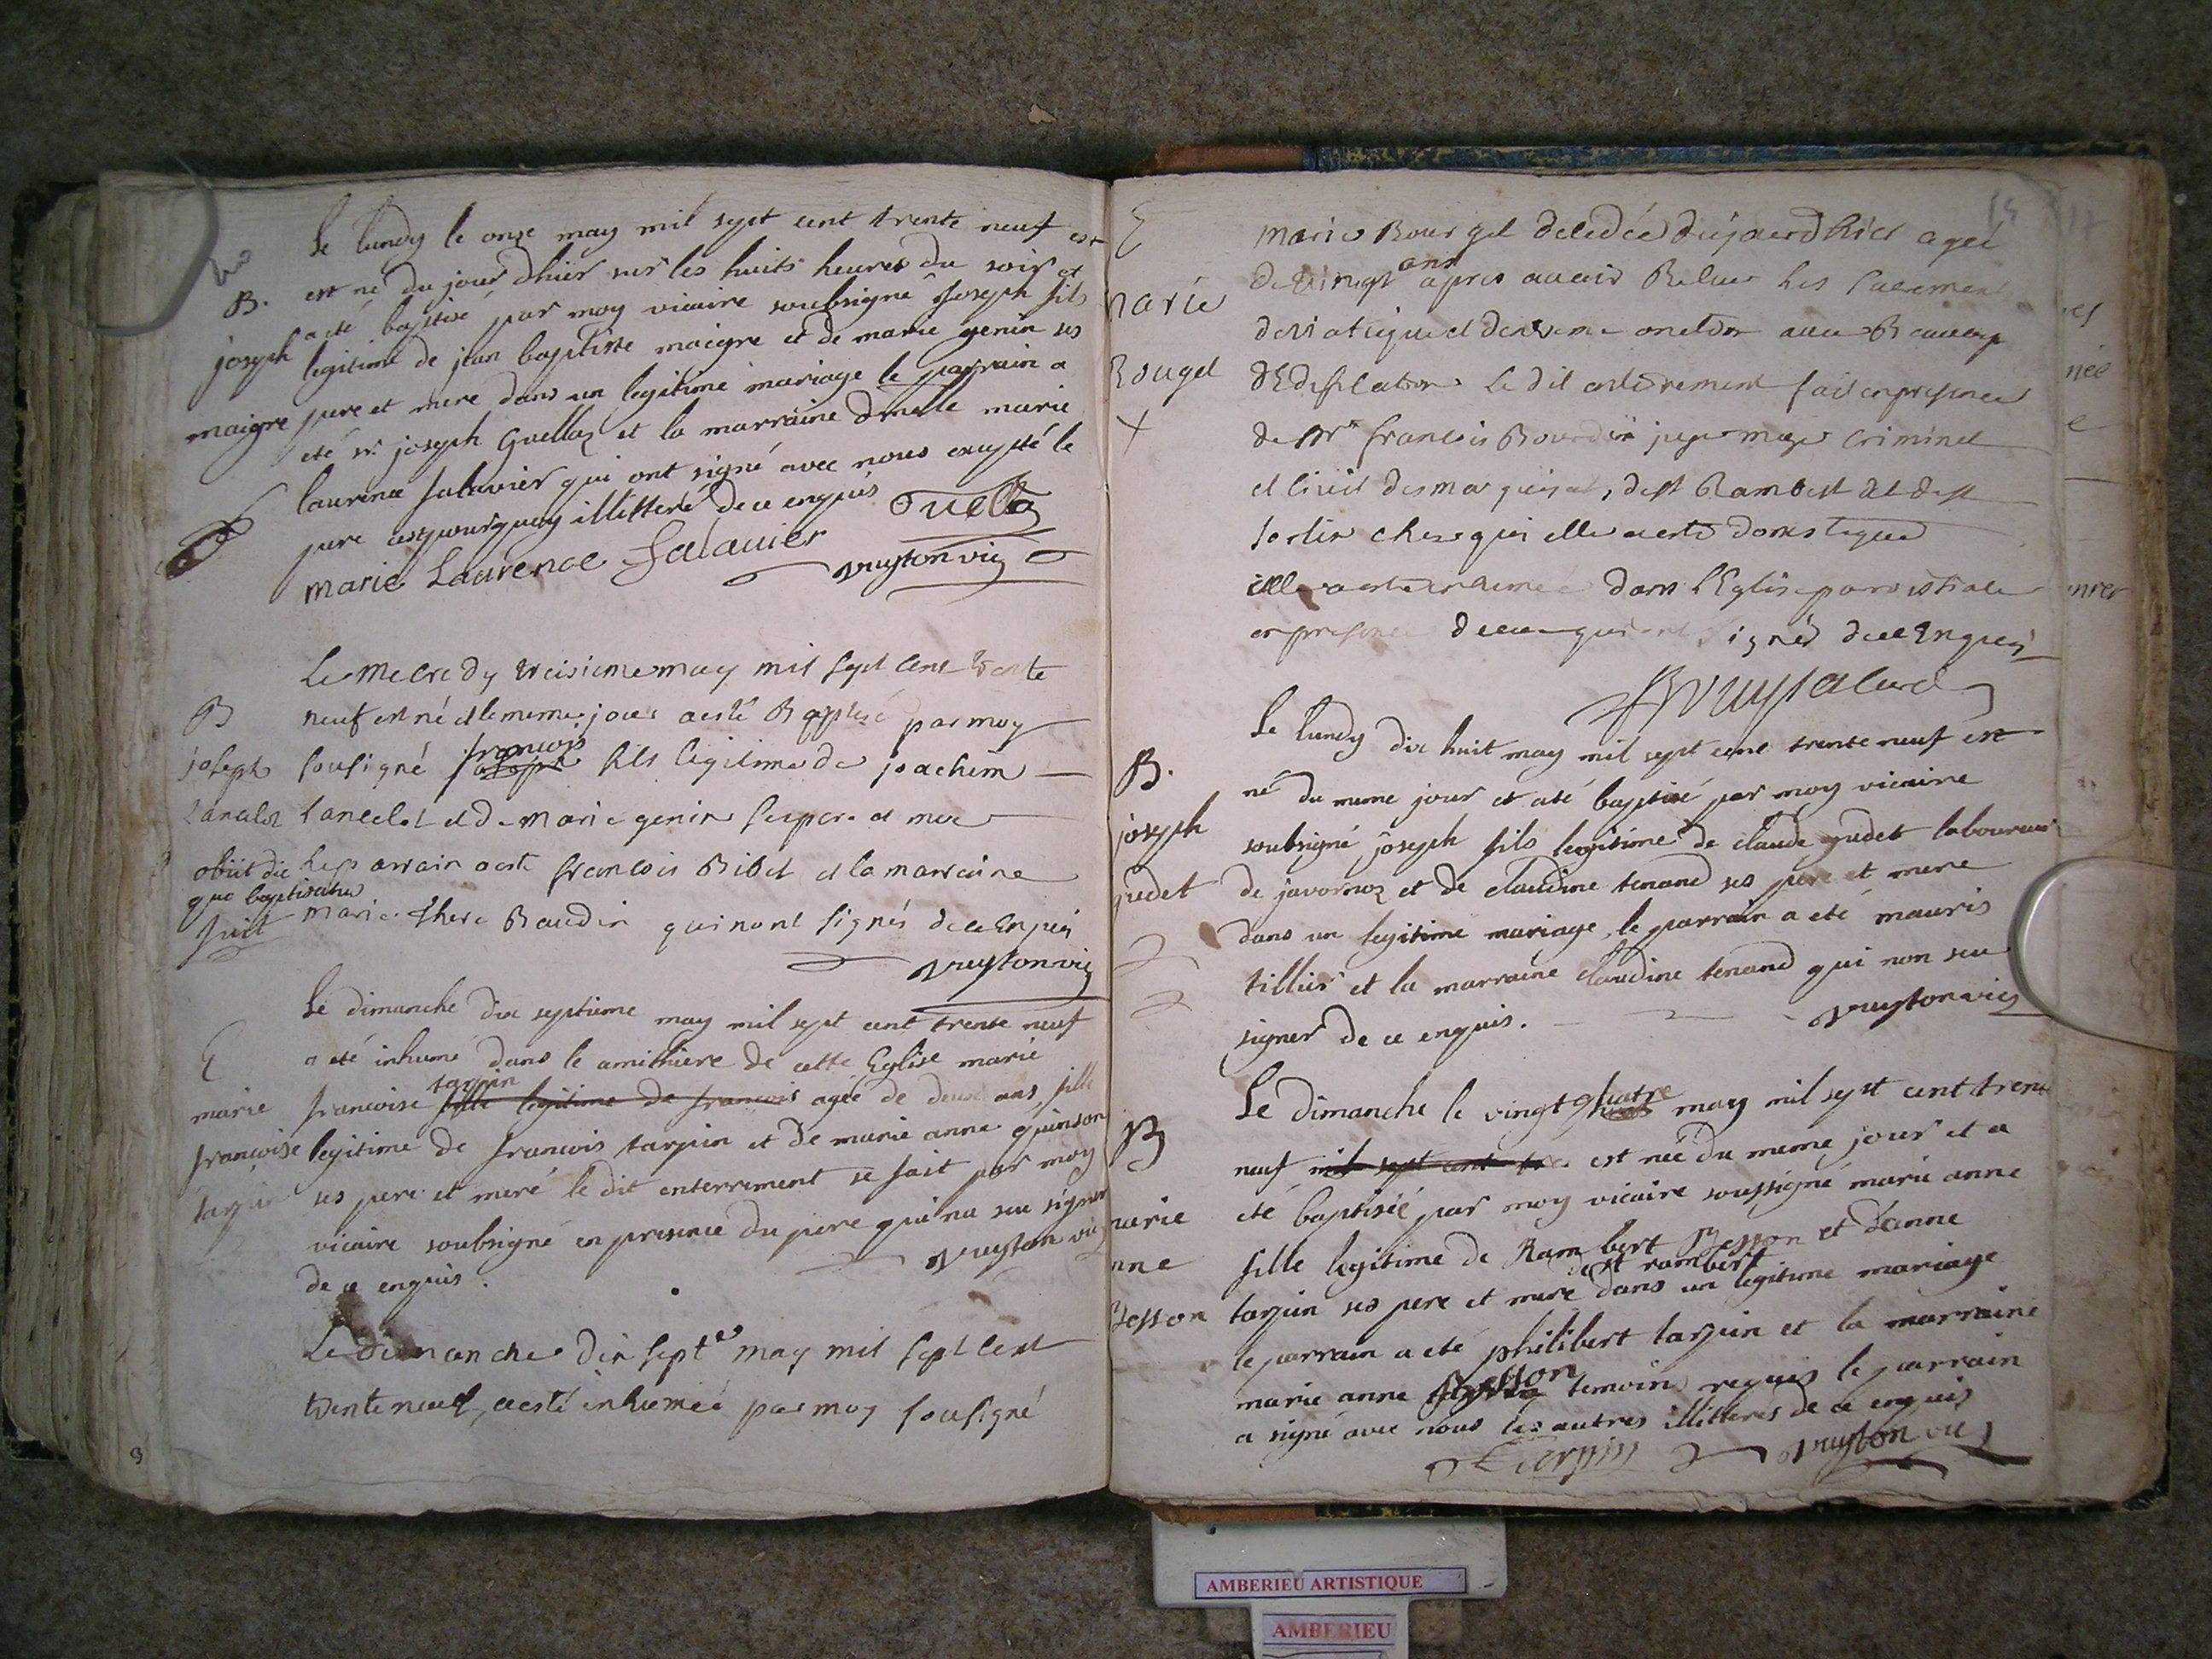 Le lundy le onze may mil sept cent trente neuf est
B. est né du jour dhier sur les huits heures du soir et
joseph a eté baptisé par moy vicaire soubsigné Joseph fils
legitime de jean baptiste maigre et de marie genin ses
maigre pere et mere dans un legitime mariage le parrain a
eté sr. joseph Guellaz et la marraine dmelle marie
laurence salavier qui ont signé avec nous excepté le
pere illitteré de ce enquis
marie Laurence Salavier
vuyton vic
Le mecredy treisieme may mil sept cent trente
B neuf est né et le meme jour a esté Baptisé par moy
joseph sousigné francois fils legitime de joachim
Lancelot Lancelot et de marie genin ses pere et mere
obiit die Le parrain a esté francois Bibet et la marraine
quo baptisatus
fuit marie there Baudin qui nont signés de ce Enquis
vuyton vic
Le dimanche dix septieme may mil sept cent trente neuf
E a eté inhumé dans le cimithiere de cette Eglise marie
tarpin
marie francoise fille legitime de francois agée de deux ans, fille
francoise legitime de francois tarpin et de marie anne quinson
tarpin ses pere et meré le dit enterrement se fait par moy
vicaire soubsigné en presence du pere qui na seu signer
de ce enquis. vuyton vic
Le dimanche dix septe may mil sept cent
trente neuf, a esté inhumée par moy sousigné
E marie Bourgel decedée dujourdhier agée
ans
marie de vingt apres avoir Reseu les sacremens
de viatique et dextreme onction avec Beaucoup
Rougel dEdification Le dit enterrement fait en presence
de Mre francois Bourdin juge mage criminel
et civil du marquisat, de st Rambert
chez qui elle a esté domestique
elle a esté inhumée dans lEglise paroissiale
en presence de ceux qui ont signés de ce Enquis
Le lundy dix huit may mil sept cent trente neuf est
B. né du meme jour et a eté baptisé par moy vicaire
joseph soubsigné joseph fils legitime de claude judet laboureur
judet de javornoz et de claudine tenand ses pere et mere
dans un legitime mariage, le parrain a eté mauris
tillier et la marraine claudine tenand qui non seu
signer de ce enquis. vuyton vic
Le dimanche le vingt quatre may mil sept cent trente
B neuf mil sept cent tre est née du meme jour et a
eté baptisée par moy vicaire soussigné marie anne
marie fille legitime de Rambert Besson et danne
de st rambert
anne tarpin ses pere et mere dans un legitime mariage
Besson le parrain a eté philibert tarpin et la marraine
marie anne Besson temoins requis le parrain
a signé avec nous les autres illitterés de ce enquis
Tarpin vuyton vic
AMBERIEU ARTISTIQUE
AMBERIEU